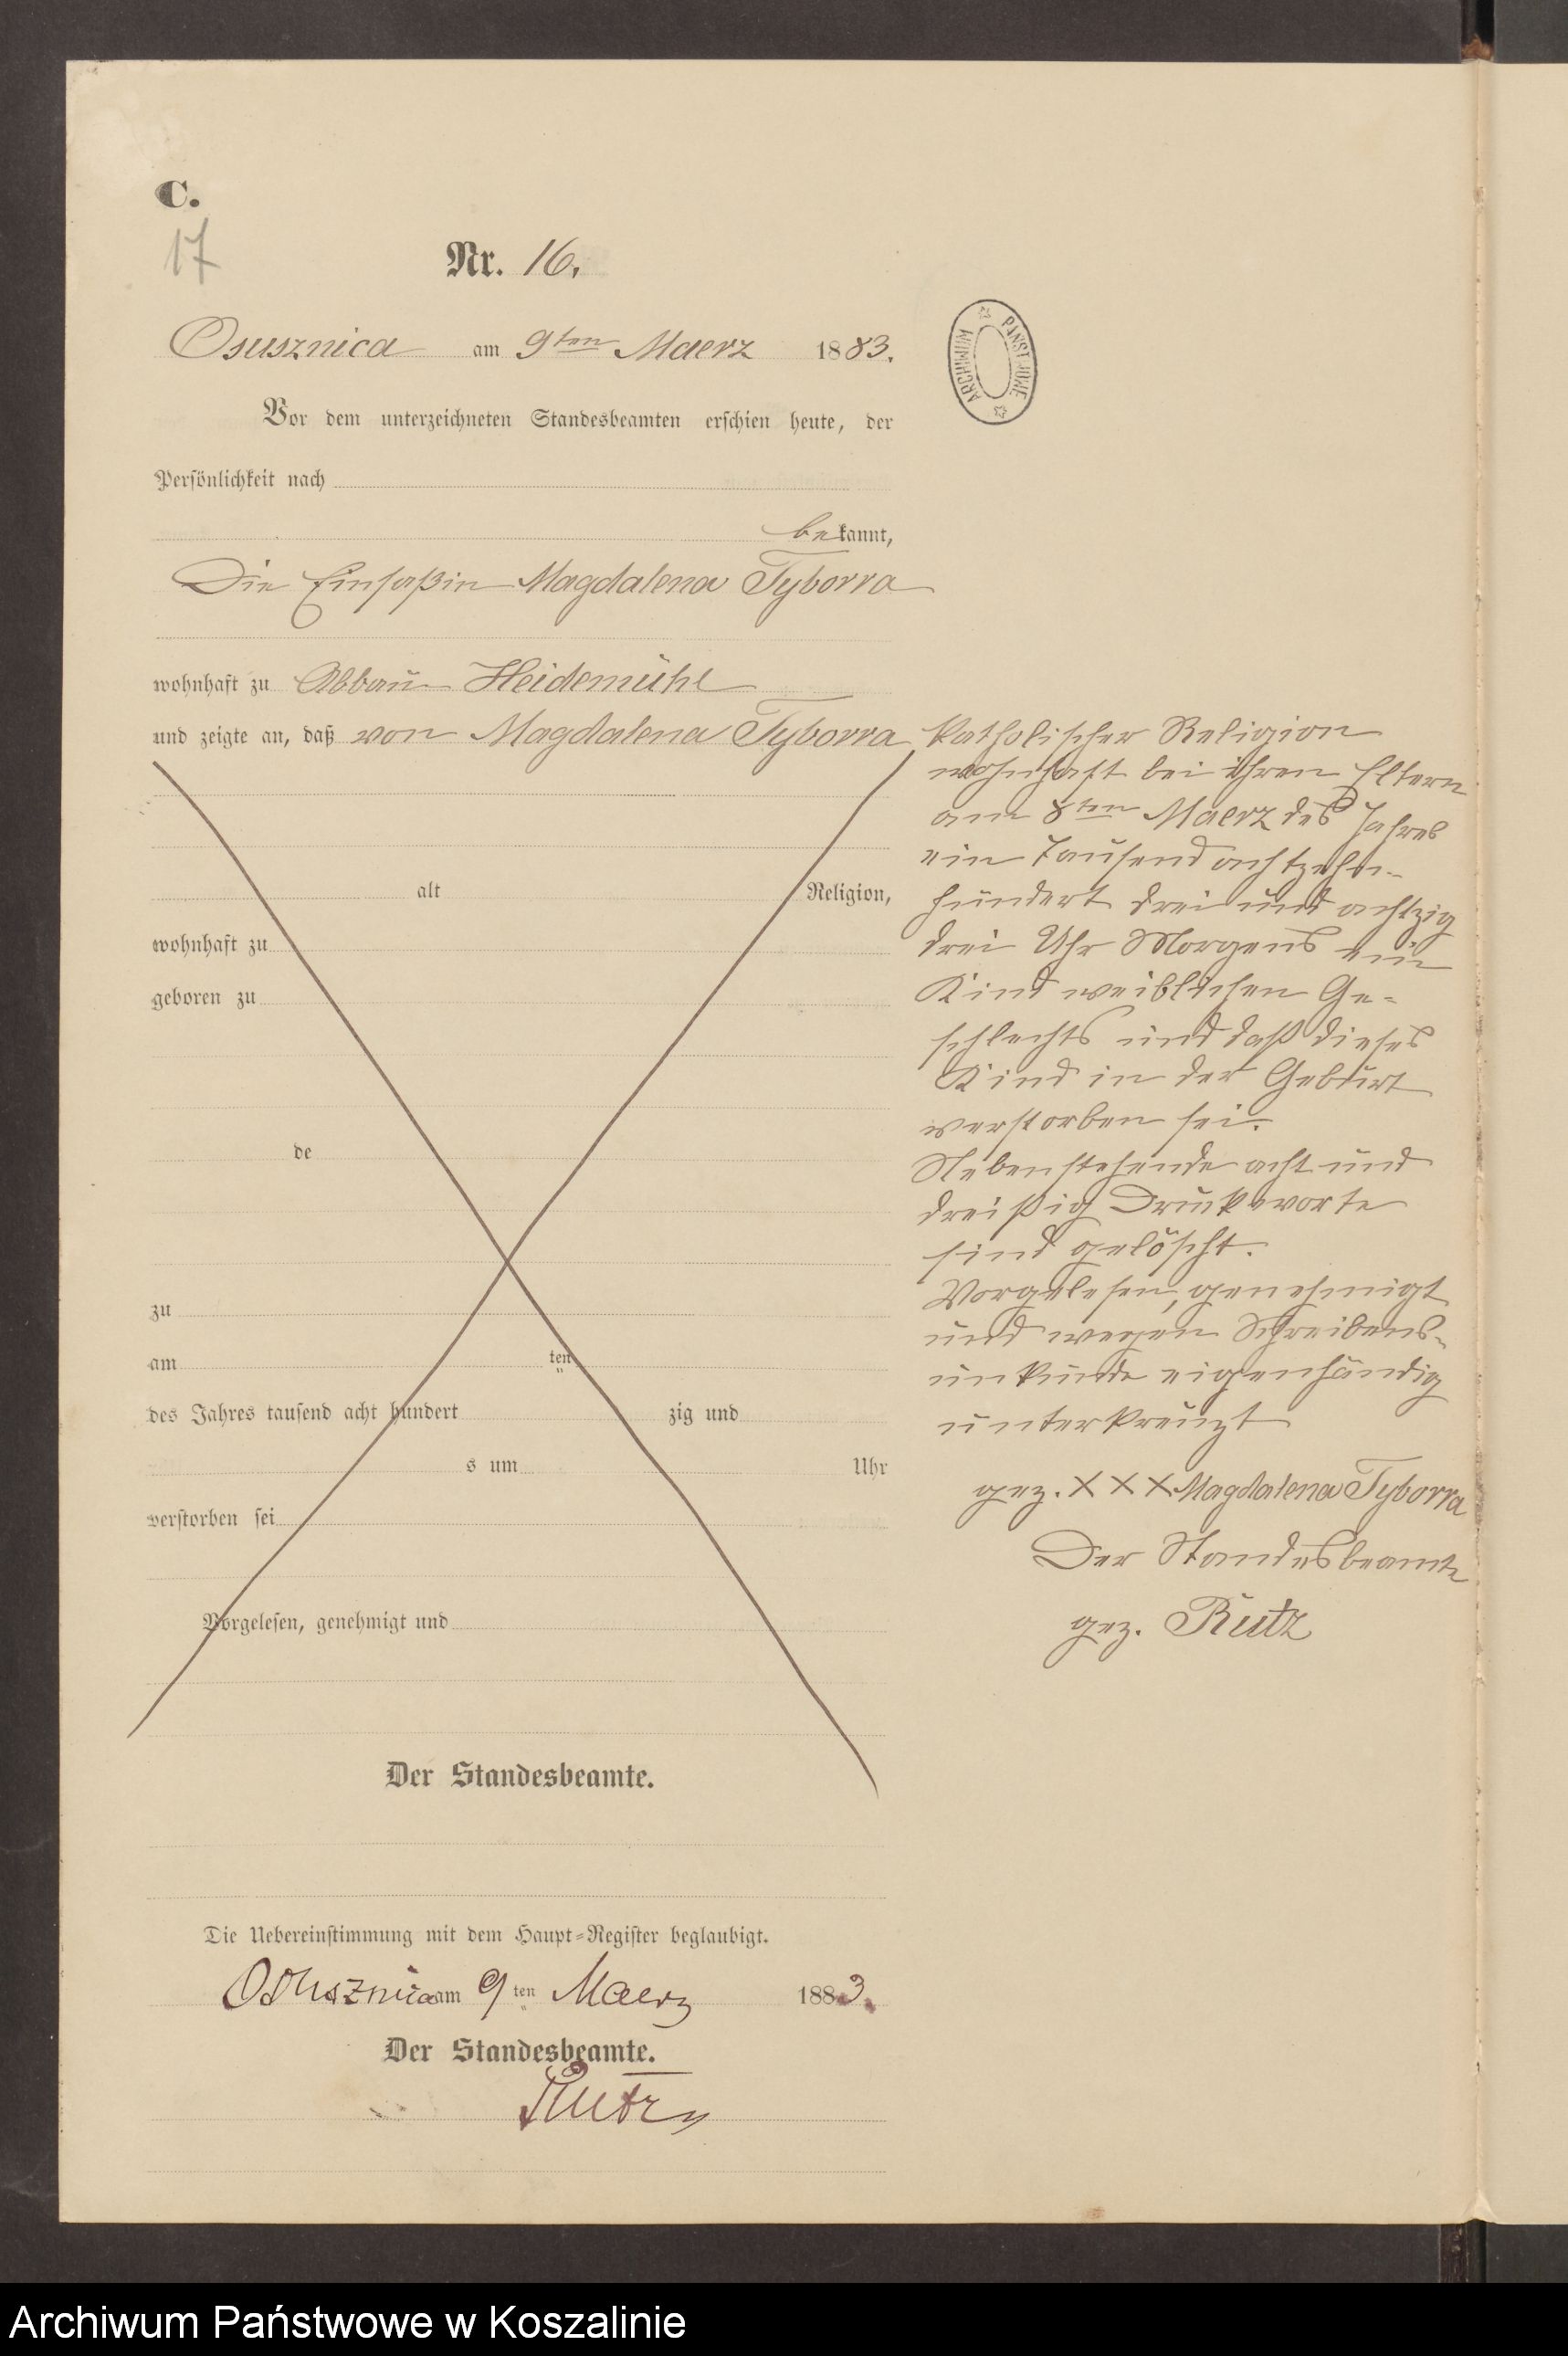 C.
17
Nr. 16.
Osusznica am 9ten Maerz 1883.
ARCHIWUM PAŃSTWOWE
Vor dem unterzeichneten Standesbeamten erschien heute, der
Persönlichkeit nach
bekannt,
Die Einsaßin Magdalena Tyborra
wohnhaft zu Abbau Heidemühl
und zeigte an, daß von Magdalena Tyborra
alt Religion,
wohnhaft zu
geboren zu
de
zu
am ten
des Jahres tausend acht hundert zig und
s um Uhr
verstorben sei
Vorgelesen, genehmigt und
Der Standesbeamte.
katholischer Religion
wohnhaft bei ihren Eltern
am 8ten Maerz des Jahres
ein Tausend achtzehn-
hundert drei und achtzig
drei Uhr Morgens ein
Kind weiblichen Ge-
schlechts und daß dieses
Kind in der Geburt
verstorben sei.
Nebenstehende acht und
dreißig Druckworte
sind gelöscht.
Vorgelesen, genehmigt
und wegen Schreibens-
unkunde eigenhändig
unterkreuzt
gez. XXX Magdalena Tyborra
Der Standesbeamte
gez. Rutz
Die Uebereinstimmung mit dem Haupt-Register beglaubigt.
Osusznica am 9ten Maerz 1883.
Der Standesbeamte.
Rutz
Archiwum Państwowe w Koszalinie